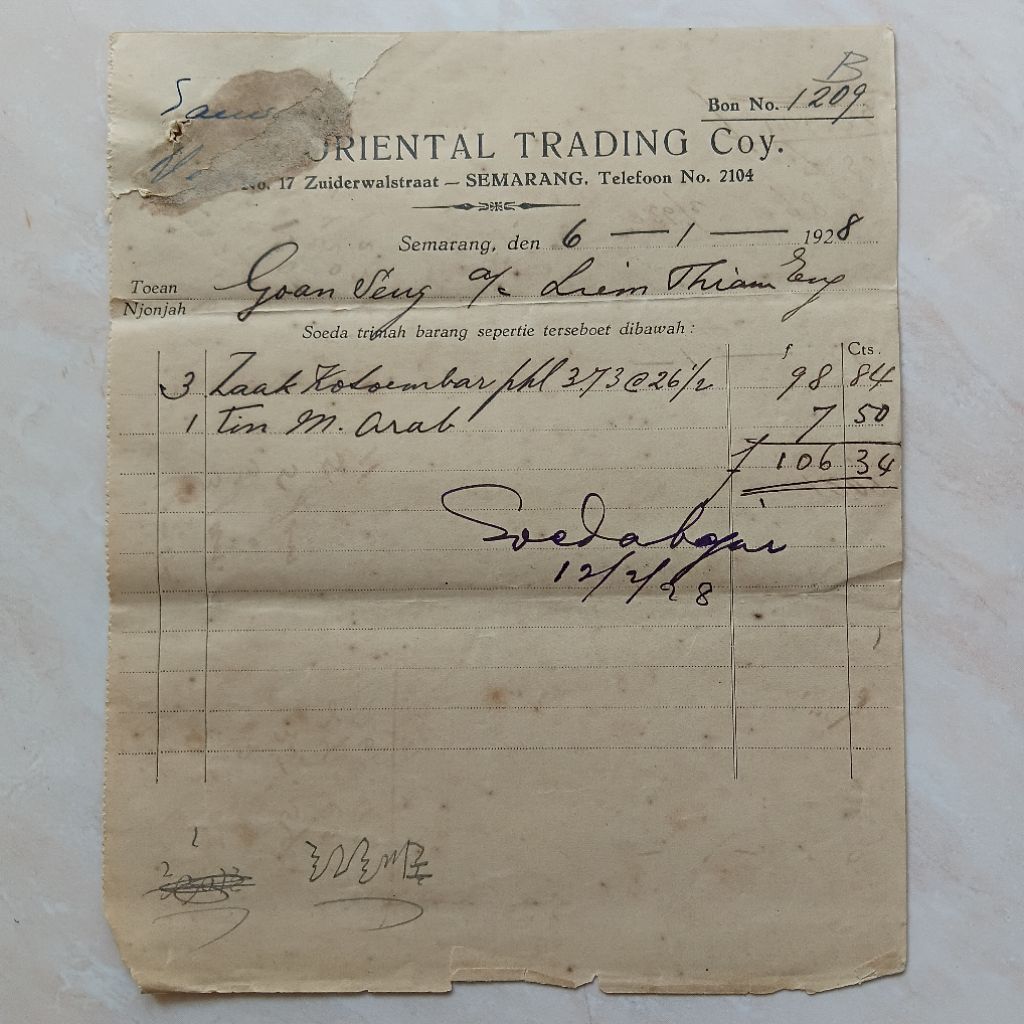 B
Bon No. 1209
ORIENTAL TRADING Coy.
No. 17 Zuiderwalstraat — SEMARANG. Telefoon No. 2104
Semarang, den 6 — 1 — 1928
Toean
Njonjah
Goan Seng a/c Liem Thiam Eng
Soeda trimah barang sepertie terseboet dibawah :
f Cts.
3 Zaak Kotoembar phl 373 @ 26 1/2 98 84
1 Tin M. Arab 7 50
f 106 34
Soeda bajar
12/2/28